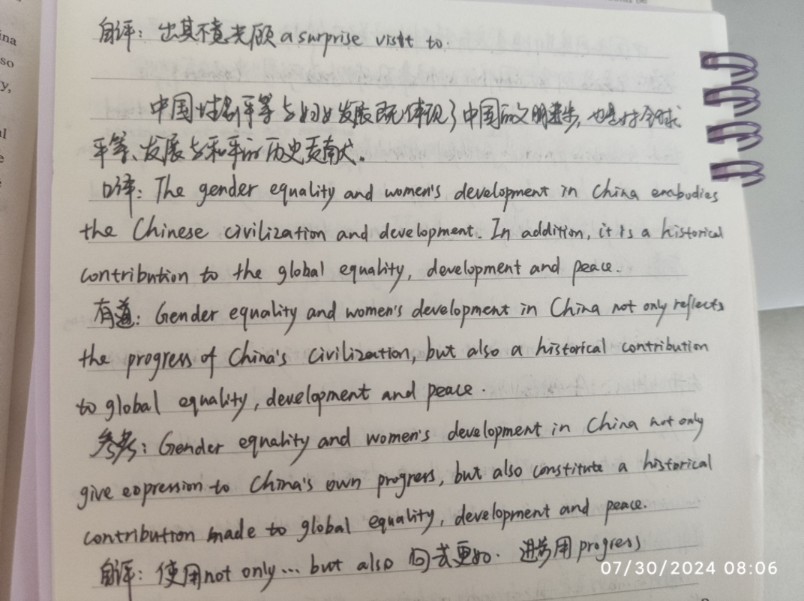 自评：出其不意光顾 a surprise visit to.
中国性别平等与妇女发展既体现了中国的文明进步，也是对全球
平等、发展与和平的历史贡献.
口译：The gender equality and women's development in China embodies
the Chinese civilization and development. In addition, it is a historical
contribution to the global equality, development and peace.
有道：Gender equality and women's development in China not only reflects
the progress of China's civilization, but also a historical contribution
to global equality, development and peace.
参考：Gender equality and women's development in China not only
give expression to China's own progress, but also constitute a historical
contribution made to global equality, development and peace.
自评：使用not only... but also 句式更好. 进步用progress
07/30/2024 08:06